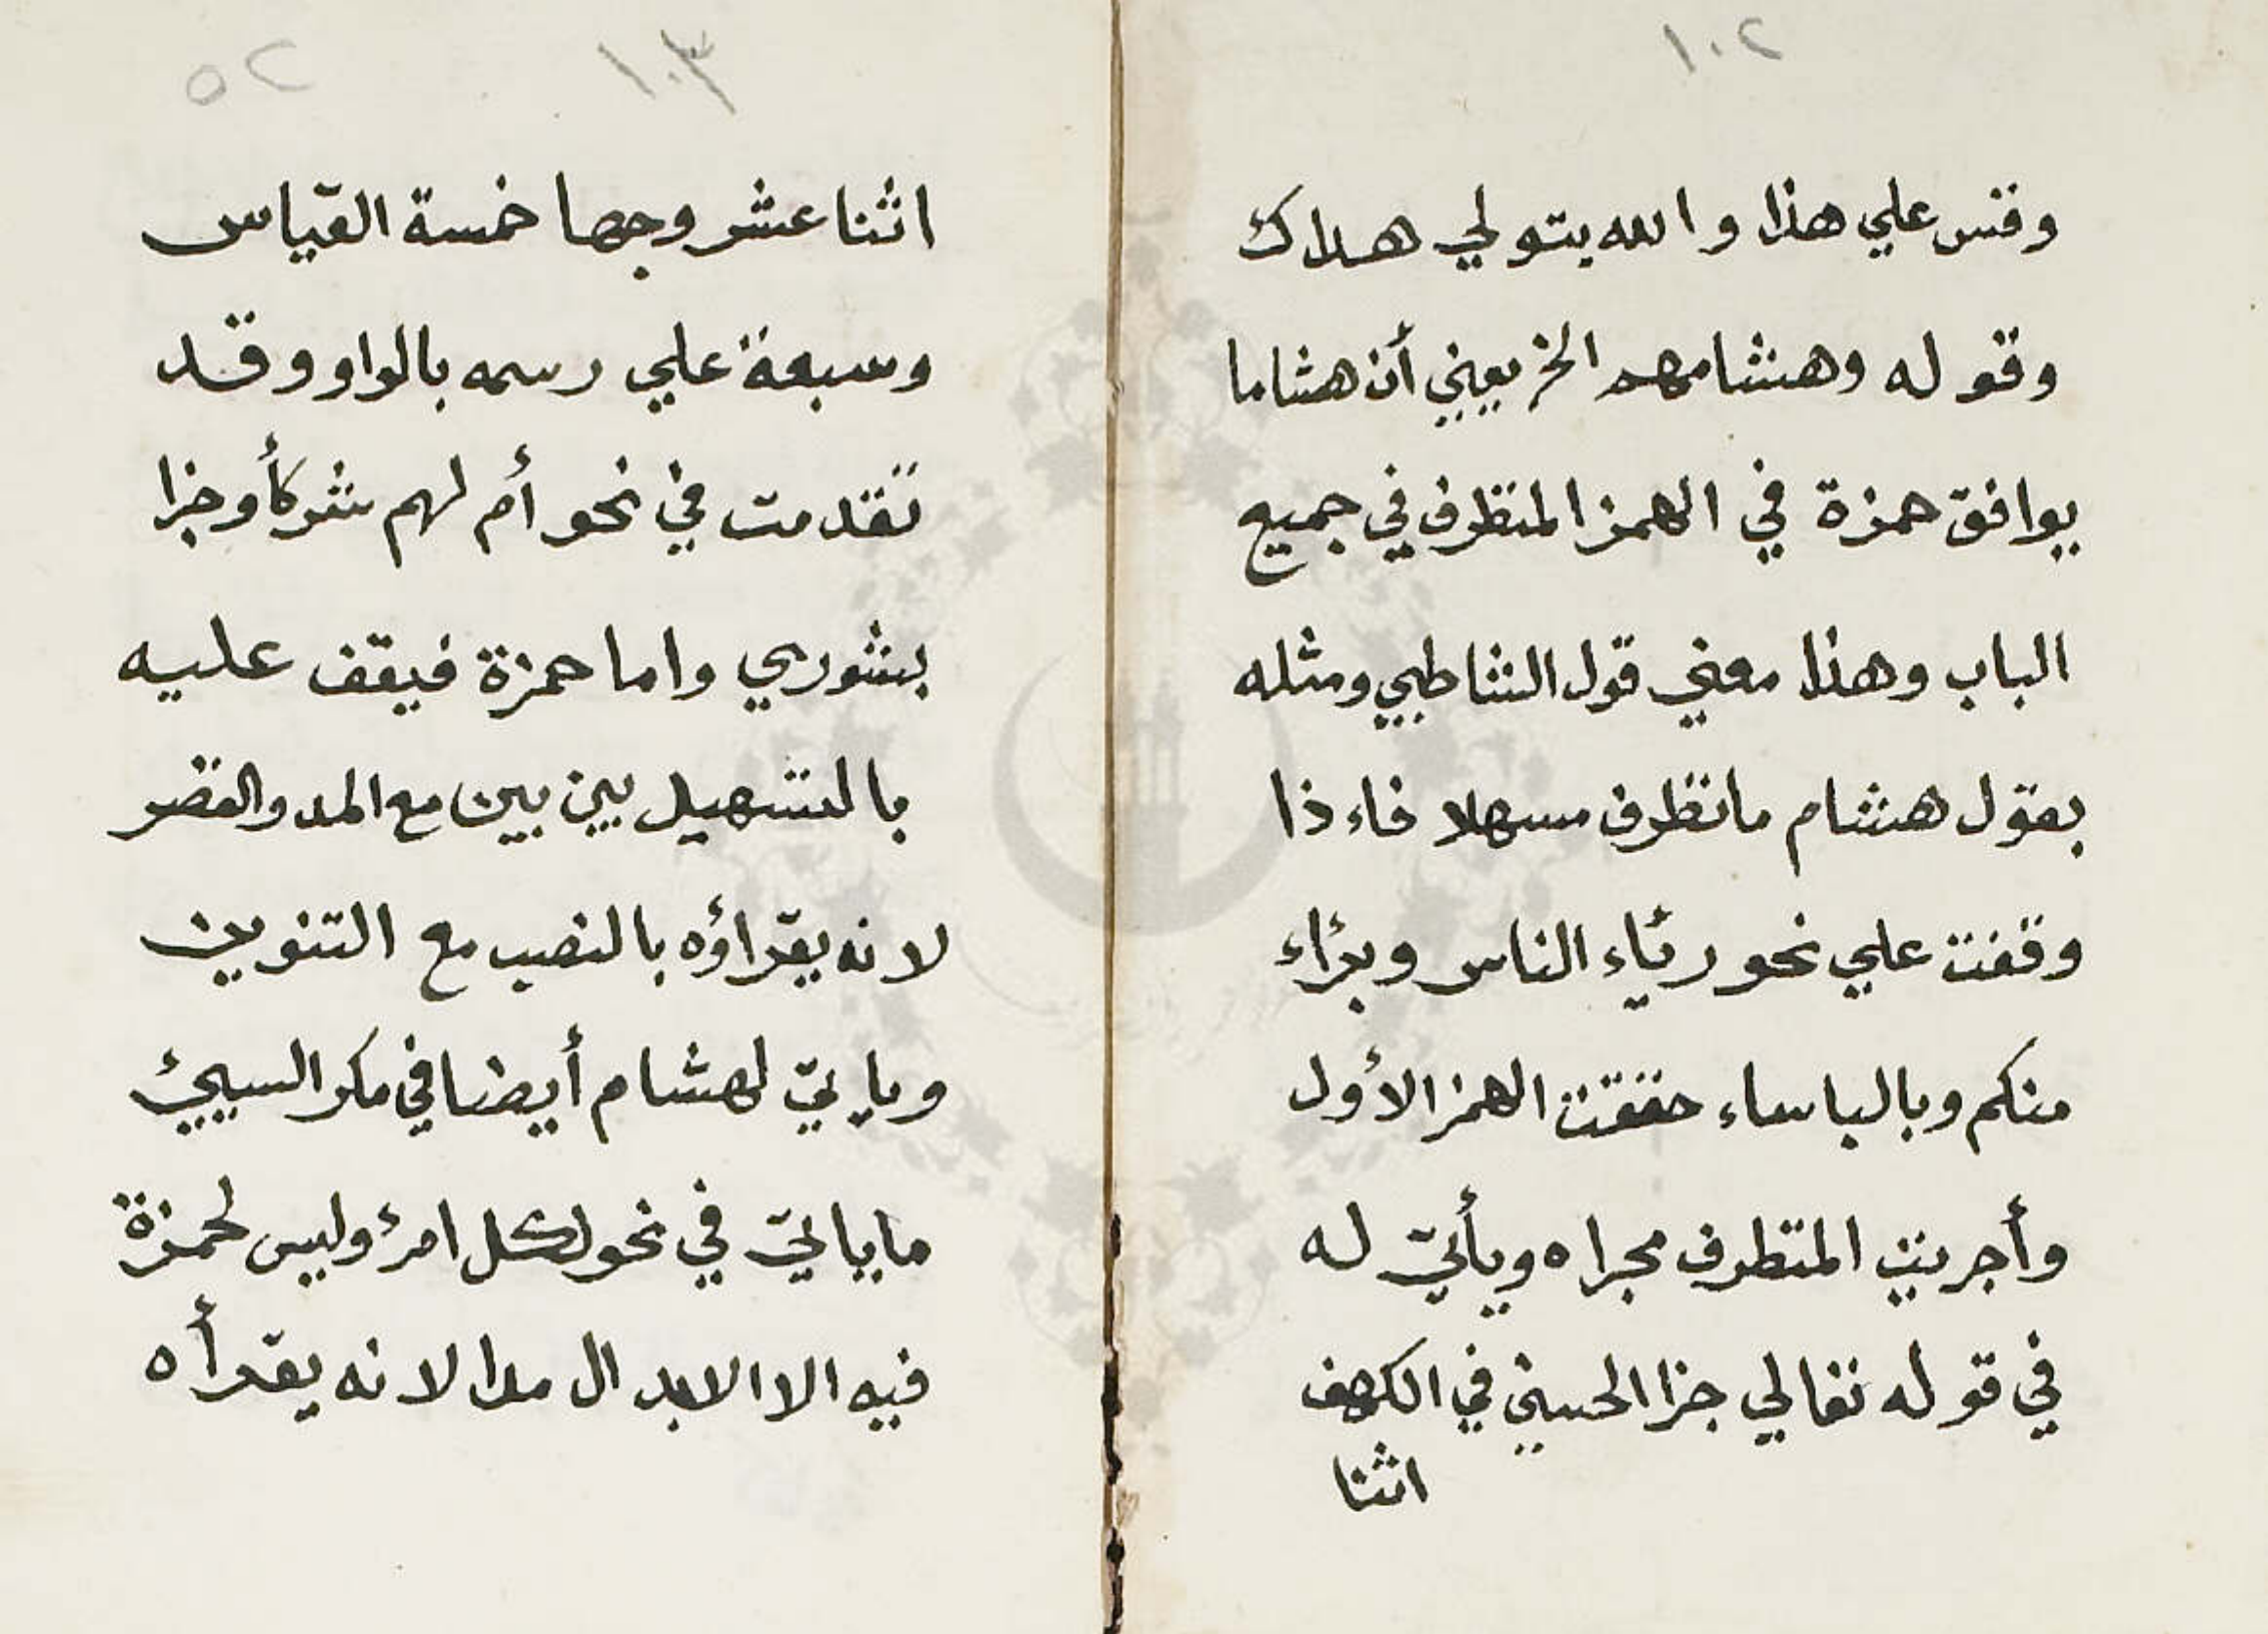 ١٠٢
وقس علي هذا والله يتولي هداك
وقوله وهشامهم الخ يعني أن هشاما
يوافق حمزة في الهمز المتطرف في جميع
الباب وهذا معني قول الشاطبي ومثله
يقول هشام ما تطرف مسهلا فاء ذا
وقفت علي نحو رئاء الناس وبرءاء
منكم وبالباساء حققت الهمز الأول
وأجريت المتطرف مجراه ويأتي له
في قوله تعالي جزا الحسني في الكهف
اثنا
١٠٣
٥٢
اثنا عشر وجها خمسة القياس
وسبعة علي رسمه بالواو وقد
تقدمت في نحو أم لهم شركأ وجزا
بشوري واما حمزة فيقف عليه
بالتسهيل بين بين مع المد والقصر
لانه يقراؤه بالنصب مع التنوين
وياتي لهشام أيضا في مكر السييئ
ما ياتي في نحو لكل امرئ وليس لحمزة
فيه الا الابدال مدا لانه يقرأه